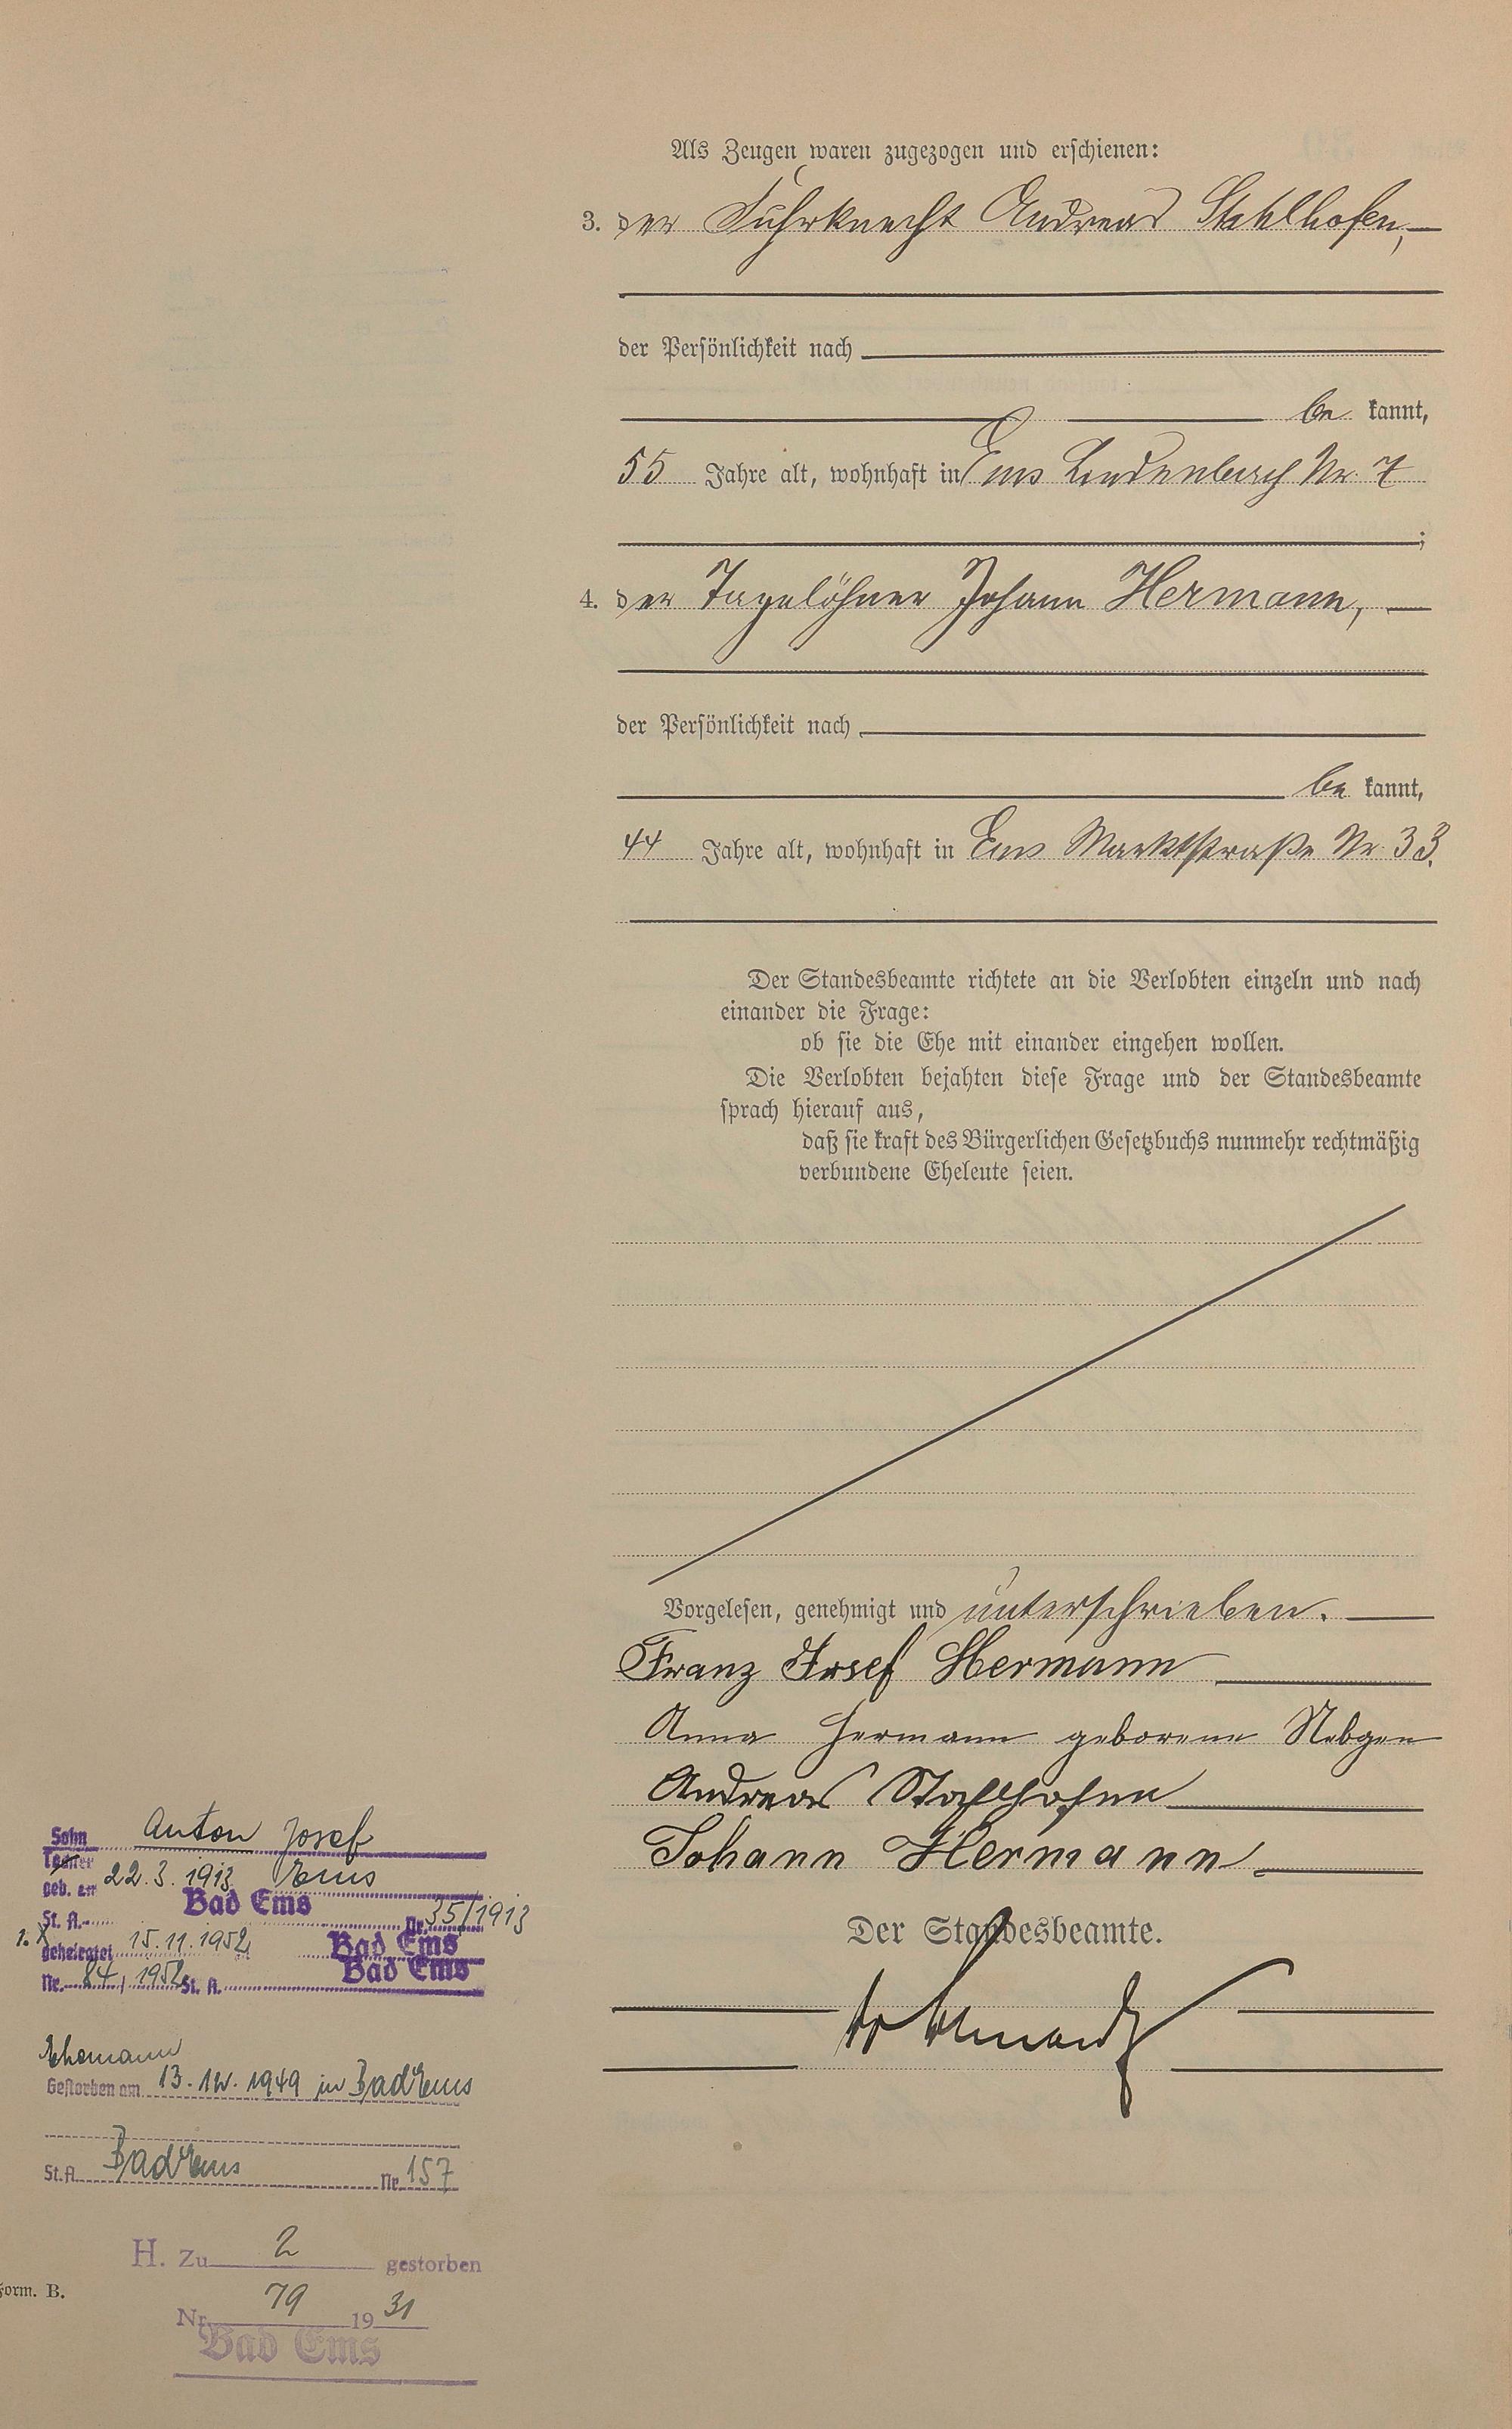 Als Zeugen waren zugezogen und erschienen:
3. der Fuhrknecht Andreas Stahlhofen,
der Persönlichkeit nach
be kannt,
55 Jahre alt, wohnhaft in Ems Lindenbach Nr. 7
;
4. der Tagelöhner Johann Hermann,
der Persönlichkeit nach
be kannt,
44 Jahre alt, wohnhaft in Ems Marktstraße Nr. 33.
Der Standesbeamte richtete an die Verlobten einzeln und nach
einander die Frage:
ob sie die Ehe mit einander eingehen wollen.
Die Verlobten bejahten diese Frage und der Standesbeamte
sprach hierauf aus,
daß sie kraft des Bürgerlichen Gesetzbuchs nunmehr rechtmäßig
verbundene Eheleute seien.
Vorgelesen, genehmigt und unterschrieben.
Franz Josef Hermann
Anna Hermann geborene Nebgen
Andreas Stahlhofen
Johann Hermann
Der Standesbeamte.
Sohn Anton Josef
Tochter
geb. am 22.3.1913 Ems
St. A. Bad Ems Nr. 35/1913
1. X geheiratet 15.11.1952 Bad Ems
Nr. 84/1952 St. A. Bad Ems
Ehemann
Gestorben am 13.12.1949 in Bad Ems
St. A. Bad Ems Nr. 157
H. Zu 2 gestorben
Nr. 79 1931
Bad Ems
Form. B.